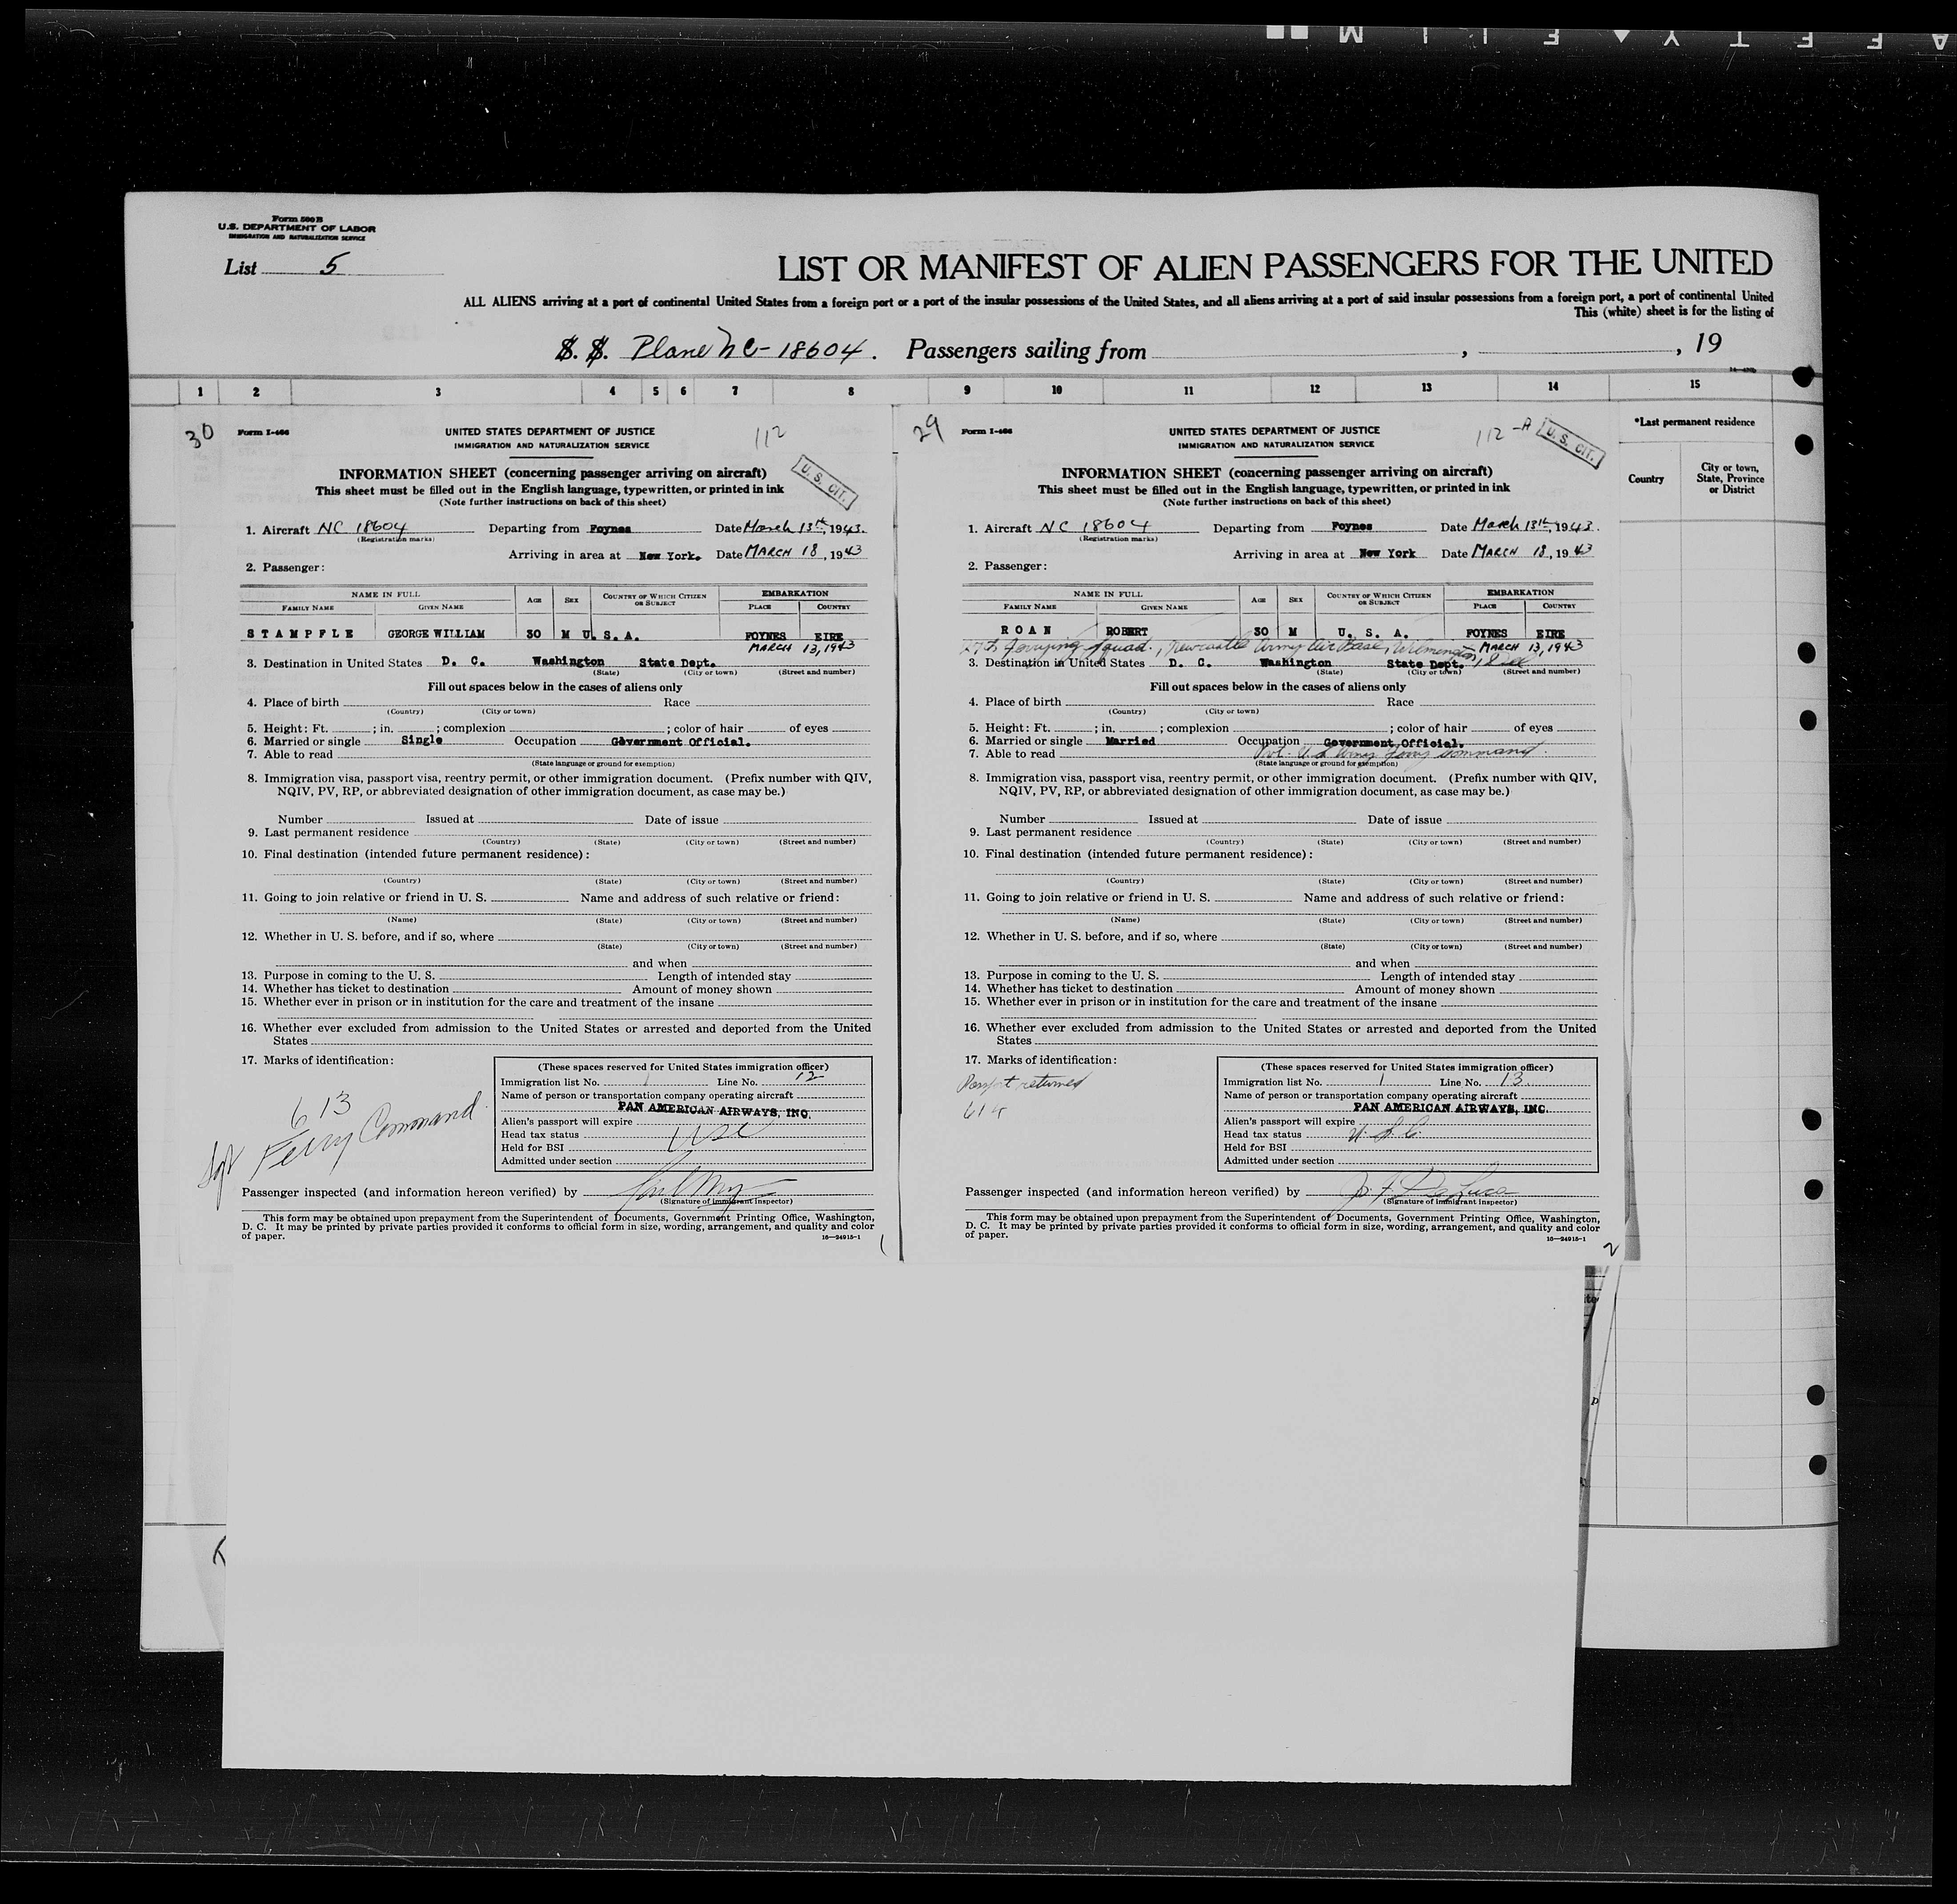 AFETY FILM
Form 500 B
U.S. DEPARTMENT OF LABOR
IMMIGRATION AND NATURALIZATION SERVICE
List 5
LIST OR MANIFEST OF ALIEN PASSENGERS FOR THE UNITED
ALL ALIENS arriving at a port of continental United States from a foreign port or a port of the insular possessions of the United States, and all aliens arriving at a port of said insular possessions from a foreign port, a port of continental United
This (white) sheet is for the listing of
S. S. Plane NC-18604. Passengers sailing from , , 19
1 2 3 4 5 6 7 8 9 10 11 12 13 14 15
*Last permanent residence
Country
City or town, State, Province or District
30
Form I-466
UNITED STATES DEPARTMENT OF JUSTICE
IMMIGRATION AND NATURALIZATION SERVICE
112
U. S. CIT.
INFORMATION SHEET (concerning passenger arriving on aircraft)
This sheet must be filled out in the English language, typewritten, or printed in ink
(Note further instructions on back of this sheet)
1. Aircraft NC 18604 Departing from Foynes Date March 13th, 1943.
(Registration marks)
Arriving in area at New York. Date MARCH 18, 1943
2. Passenger:
NAME IN FULL AGE SEX COUNTRY OF WHICH CITIZEN OR SUBJECT EMBARKATION
FAMILY NAME GIVEN NAME PLACE COUNTRY
STAMPFLE GEORGE WILLIAM 30 M U. S. A. FOYNES EIRE
MARCH 13, 1943
3. Destination in United States D. C. Washington State Dept.
(State) (City or town) (Street and number)
Fill out spaces below in the cases of aliens only
4. Place of birth Race
(Country) (City or town)
5. Height: Ft. ; in. ; complexion ; color of hair of eyes
6. Married or single Single Occupation Government Official.
7. Able to read
(State language or ground for exemption)
8. Immigration visa, passport visa, reentry permit, or other immigration document. (Prefix number with QIV,
NQIV, PV, RP, or abbreviated designation of other immigration document, as case may be.)
Number Issued at Date of issue
9. Last permanent residence
(Country) (State) (City or town) (Street and number)
10. Final destination (intended future permanent residence):
(Country) (State) (City or town) (Street and number)
11. Going to join relative or friend in U. S. Name and address of such relative or friend:
(Name) (State) (City or town) (Street and number)
12. Whether in U. S. before, and if so, where
(State) (City or town) (Street and number)
and when
13. Purpose in coming to the U. S. Length of intended stay
14. Whether has ticket to destination Amount of money shown
15. Whether ever in prison or in institution for the care and treatment of the insane
16. Whether ever excluded from admission to the United States or arrested and deported from the United
States
17. Marks of identification:
613
Sgt Ferry Command
(These spaces reserved for United States immigration officer)
Immigration list No. 1 Line No. 12
Name of person or transportation company operating aircraft
PAN AMERICAN AIRWAYS, INC.
Alien's passport will expire
Head tax status USC
Held for BSI
Admitted under section
Passenger inspected (and information hereon verified) by
(Signature of immigrant inspector)
This form may be obtained upon prepayment from the Superintendent of Documents, Government Printing Office, Washington,
D. C. It may be printed by private parties provided it conforms to official form in size, wording, arrangement, and quality and color
of paper.
16—24915-1
1
29
Form I-466
UNITED STATES DEPARTMENT OF JUSTICE
IMMIGRATION AND NATURALIZATION SERVICE
112-A
U. S. CIT.
INFORMATION SHEET (concerning passenger arriving on aircraft)
This sheet must be filled out in the English language, typewritten, or printed in ink
(Note further instructions on back of this sheet)
1. Aircraft NC 18604 Departing from Foynes Date March 13th, 1943.
(Registration marks)
Arriving in area at New York Date MARCH 18, 1943
2. Passenger:
NAME IN FULL AGE SEX COUNTRY OF WHICH CITIZEN OR SUBJECT EMBARKATION
FAMILY NAME GIVEN NAME PLACE COUNTRY
ROAN ROBERT 30 M U. S. A. FOYNES EIRE
27th Ferrying Squad., Newcastle Army Air Base, Wilmington, Del MARCH 13, 1943
3. Destination in United States D. C. Washington State Dept.
(State) (City or town) (Street and number)
Fill out spaces below in the cases of aliens only
4. Place of birth Race
(Country) (City or town)
5. Height: Ft. ; in. ; complexion ; color of hair of eyes
6. Married or single Married Occupation Government Official.
7. Able to read Pvt. U.S. Army Ferry Command.
(State language or ground for exemption)
8. Immigration visa, passport visa, reentry permit, or other immigration document. (Prefix number with QIV,
NQIV, PV, RP, or abbreviated designation of other immigration document, as case may be.)
Number Issued at Date of issue
9. Last permanent residence
(Country) (State) (City or town) (Street and number)
10. Final destination (intended future permanent residence):
(Country) (State) (City or town) (Street and number)
11. Going to join relative or friend in U. S. Name and address of such relative or friend:
(Name) (State) (City or town) (Street and number)
12. Whether in U. S. before, and if so, where
(State) (City or town) (Street and number)
and when
13. Purpose in coming to the U. S. Length of intended stay
14. Whether has ticket to destination Amount of money shown
15. Whether ever in prison or in institution for the care and treatment of the insane
16. Whether ever excluded from admission to the United States or arrested and deported from the United
States
17. Marks of identification:
Passport returned
614
(These spaces reserved for United States immigration officer)
Immigration list No. 1 Line No. 13.
Name of person or transportation company operating aircraft
PAN AMERICAN AIRWAYS, INC.
Alien's passport will expire
Head tax status U.S.C.
Held for BSI
Admitted under section
Passenger inspected (and information hereon verified) by J. F. DeLuca
(Signature of immigrant inspector)
This form may be obtained upon prepayment from the Superintendent of Documents, Government Printing Office, Washington,
D. C. It may be printed by private parties provided it conforms to official form in size, wording, arrangement, and quality and color
of paper.
16—24915-1
2